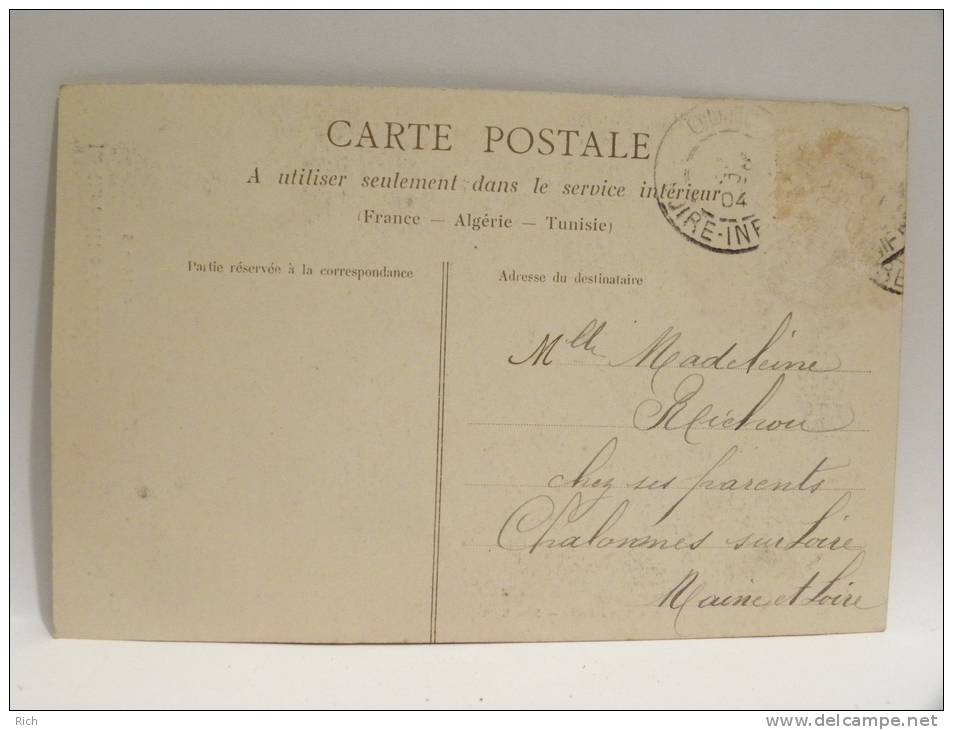 CARTE POSTALE
A utiliser seulement dans le service intérieur
(France — Algérie — Tunisie)
Partie réservée à la correspondance
Adresse du destinataire
04
LOIRE-INF
Mlle Madeleine
Richou
chez ses parents
Chalonnes sur Loire
Maine et Loire
Rich
http://www.delcampe.net